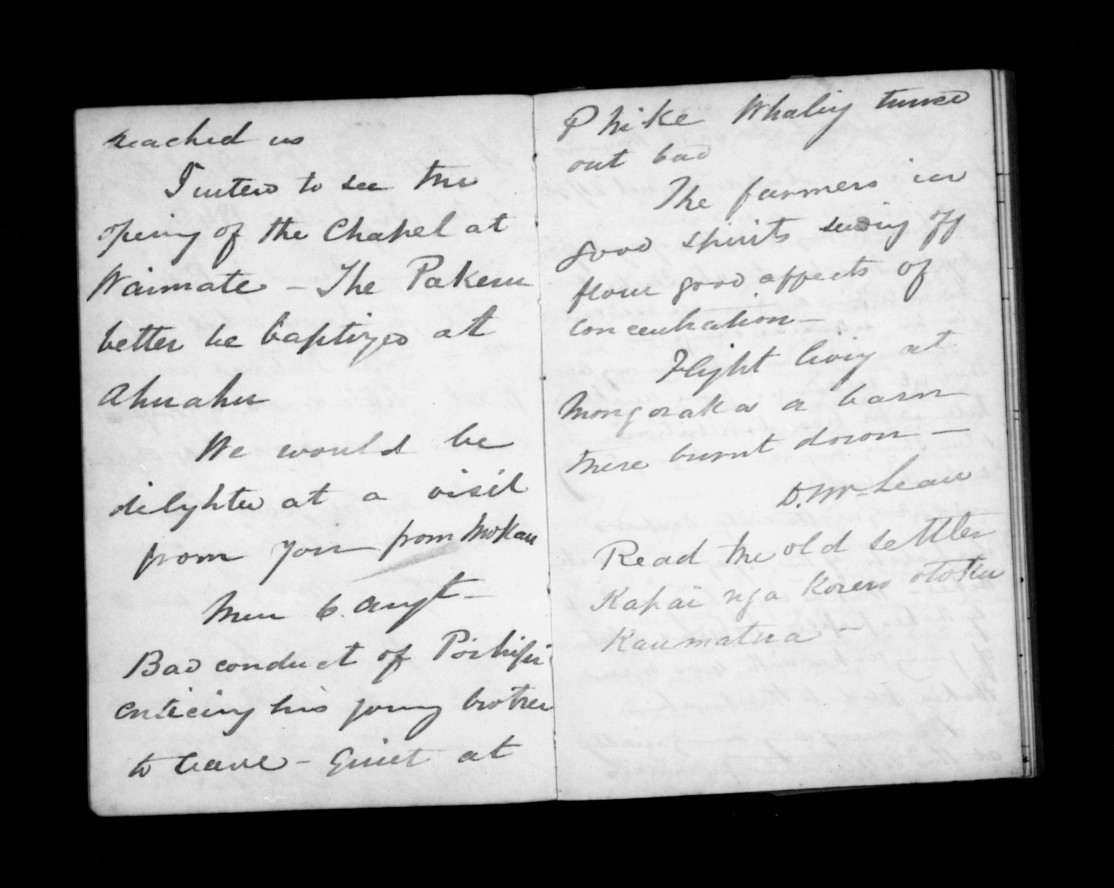 reached us
I intend to see the
opening of the Chapel at
Waimate – The Pakeha
better be baptized at
Ahuahu
We would be
delighted at a visit
from you from Mokau
6. Augt –
Bad conduct of
enticing his young brother
to leave – Quiet at
Whaling turned
out bad
The farmers in
good spirits sending off
flour good affects of
concentration –
Flight living at
Mongoraka a barn
there burnt down –
D. McLean
Read the old settler
Kapai nga korero otoku
Kaumatua –